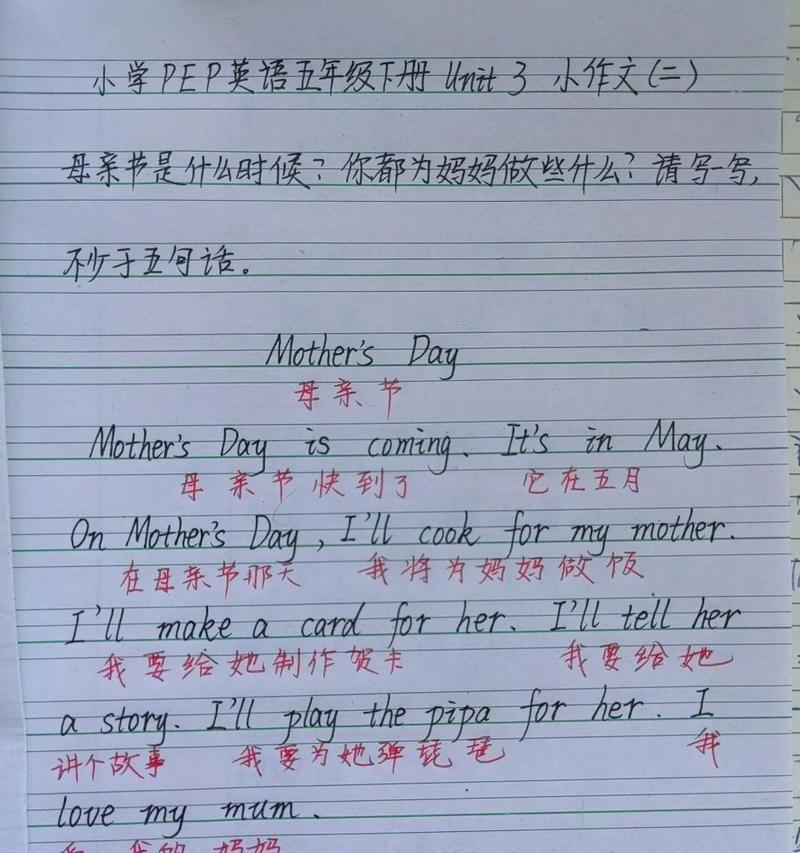 小学PEP英语五年级下册 Unit 3 小作文(二)
母亲节是什么时候?你都为妈妈做些什么?请写一写,
不少于五句话。
Mother's Day
母亲节
Mother's Day is coming. It's in May.
母亲节快到了 它在五月
On Mother's Day, I'll cook for my mother.
在母亲节那天 我将为妈妈做饭
I'll make a card for her. I'll tell her
我要给她制作贺卡 我要给她
a story. I'll play the pipa for her. I
讲个故事 我要为她弹琵琶 我
love my mum.